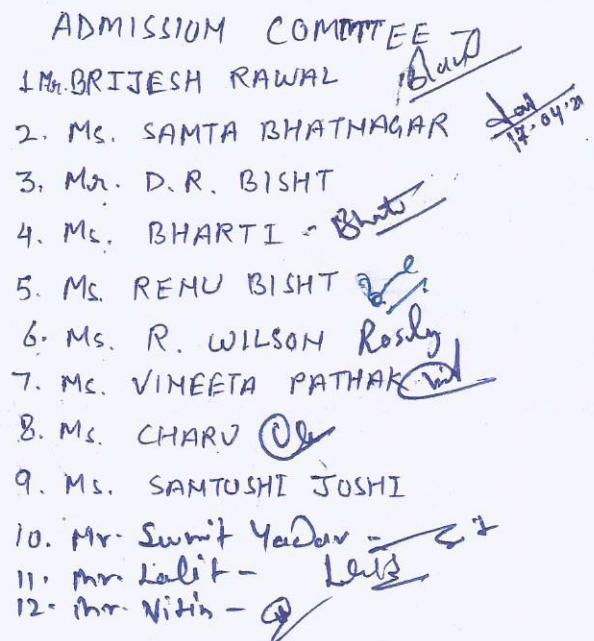 ADMISSION COMMITTEE
1 Mr. BRIJESH RAWAL
2. Ms. SAMTA BHATNAGAR 17.04.21
3. Mr. D.R. BISHT
4. Ms. BHARTI - Bharti
5. Ms. RENU BISHT
6. Ms. R. WILSON Rosily
7. Ms. VINEETA PATHAK
8. Ms. CHARU
9. Ms. SANTOSHI JOSHI
10. Mr. Sumit Yadav -
11. Mr. Lalit - Lalit
12. Mr. Nitin -